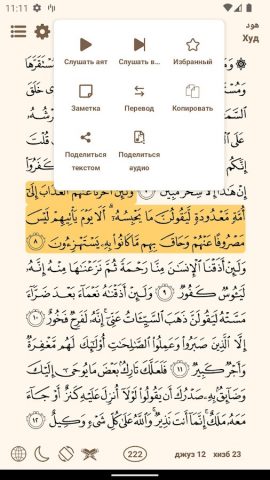 11:11
هود
Худ
Слушать аят
Слушать в...
Избранный
Заметка
Перевод
Копировать
Поделиться
текстом
Поделиться
аудио
أُمَّةٍ مَّعْدُودَةٍ لَّيَقُولُنَّ مَا يَحْبِسُهُۥٓ ۗ أَلَا يَوْمَ يَأْتِيهِمْ لَيْسَ
مَصْرُوفًا عَنْهُمْ وَحَاقَ بِهِم مَّا كَانُوا۟ بِهِۦ يَسْتَهْزِءُونَ ٨
وَلَئِنْ أَذَقْنَا ٱلْإِنسَٰنَ مِنَّا رَحْمَةً ثُمَّ نَزَعْنَٰهَا مِنْهُ إِنَّهُۥ
لَيَـُٔوسٌ كَفُورٌ ٩ وَلَئِنْ أَذَقْنَٰهُ نَعْمَآءَ بَعْدَ ضَرَّآءَ
مَسَّتْهُ لَيَقُولَنَّ ذَهَبَ ٱلسَّيِّـَٔاتُ عَنِّىٓ ۚ إِنَّهُۥ لَفَرِحٌ فَخُورٌ ١٠
إِلَّا ٱلَّذِينَ صَبَرُوا۟ وَعَمِلُوا۟ ٱلصَّٰلِحَٰتِ أُو۟لَٰٓئِكَ لَهُم مَّغْفِرَةٌ
وَأَجْرٌ كَبِيرٌ ١١ فَلَعَلَّكَ تَارِكٌۢ بَعْضَ مَا يُوحَىٰٓ إِلَيْكَ
وَضَآئِقٌۢ بِهِۦ صَدْرُكَ أَن يَقُولُوا۟ لَوْلَآ أُنزِلَ عَلَيْهِ كَنزٌ أَوْ جَآءَ
مَعَهُۥ مَلَكٌ ۚ إِنَّمَآ أَنتَ نَذِيرٌ ۚ وَٱللَّهُ عَلَىٰ كُلِّ شَىْءٍ وَكِيلٌ ١٢
222
джуз 12
хизб 23